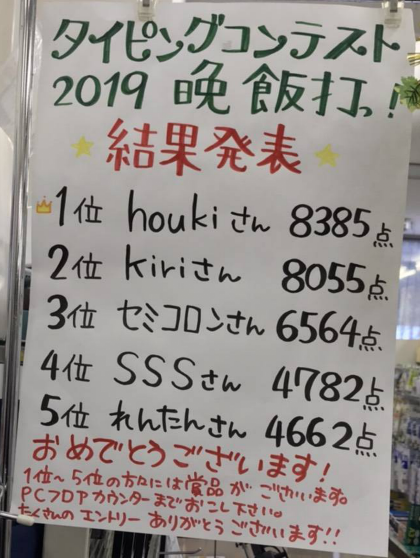 タイピングコンテスト
2019 晩飯打っ!
結果発表
1位 houkiさん 8385点
2位 kiriさん 8055点
3位 セミコロンさん 6564点
4位 SSSさん 4782点
5位 れんたんさん 4662点
おめでとうございます!
1位~5位の方々には賞品がございます。
PCフロアカウンターまでおこし下さい。
たくさんのエントリーありがとうございます!!